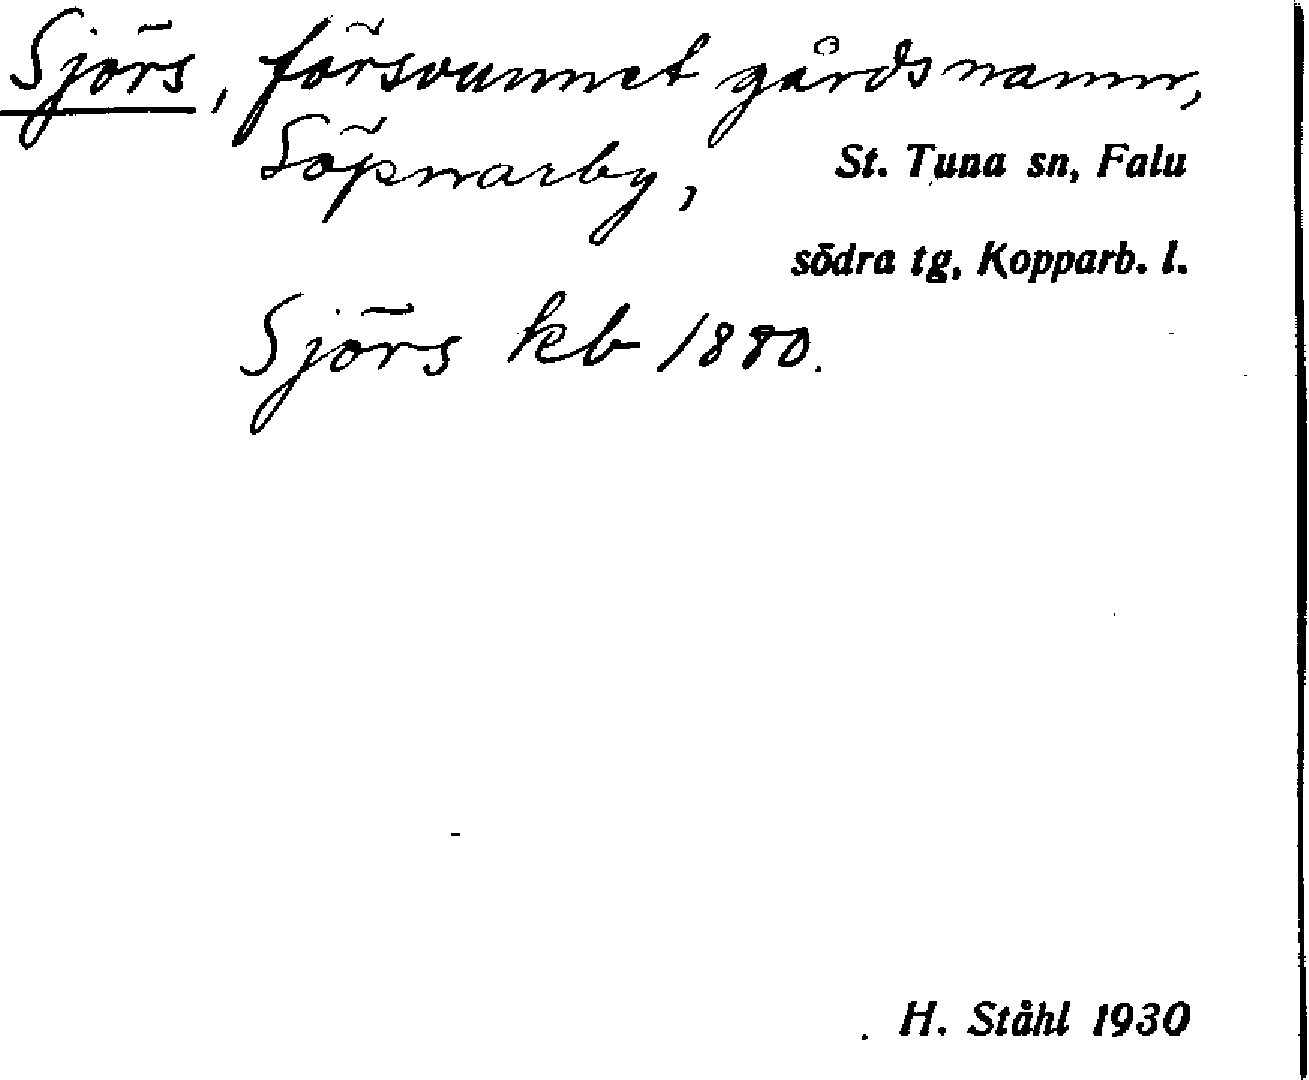 Sjörs, försvunnet gårdsnamn,
Söpnarby, St. Tuna sn, Falu
södra tg, Kopparb. l.
Sjörs kb 1880.
H. Ståhl 1930